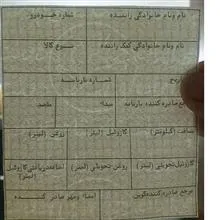 نام ونام خانوادگی راننده شماره خودرو
نام ونام خانوادگی کمک راننده نوع کالا
تاریخ شماره بارنامه
مرجع صادر کننده بارنامه مبداء مقصد
مسافت (کیلومتر) گازوئیل (لیتر) روغن (لیتر)
گازوئیل تحویلی (لیتر) روغن تحویلی (لیتر) اضافه دریافتی گازوئیل (لیتر)
مرجع صادر کننده کوپن امضاء ومهر صادر کننده